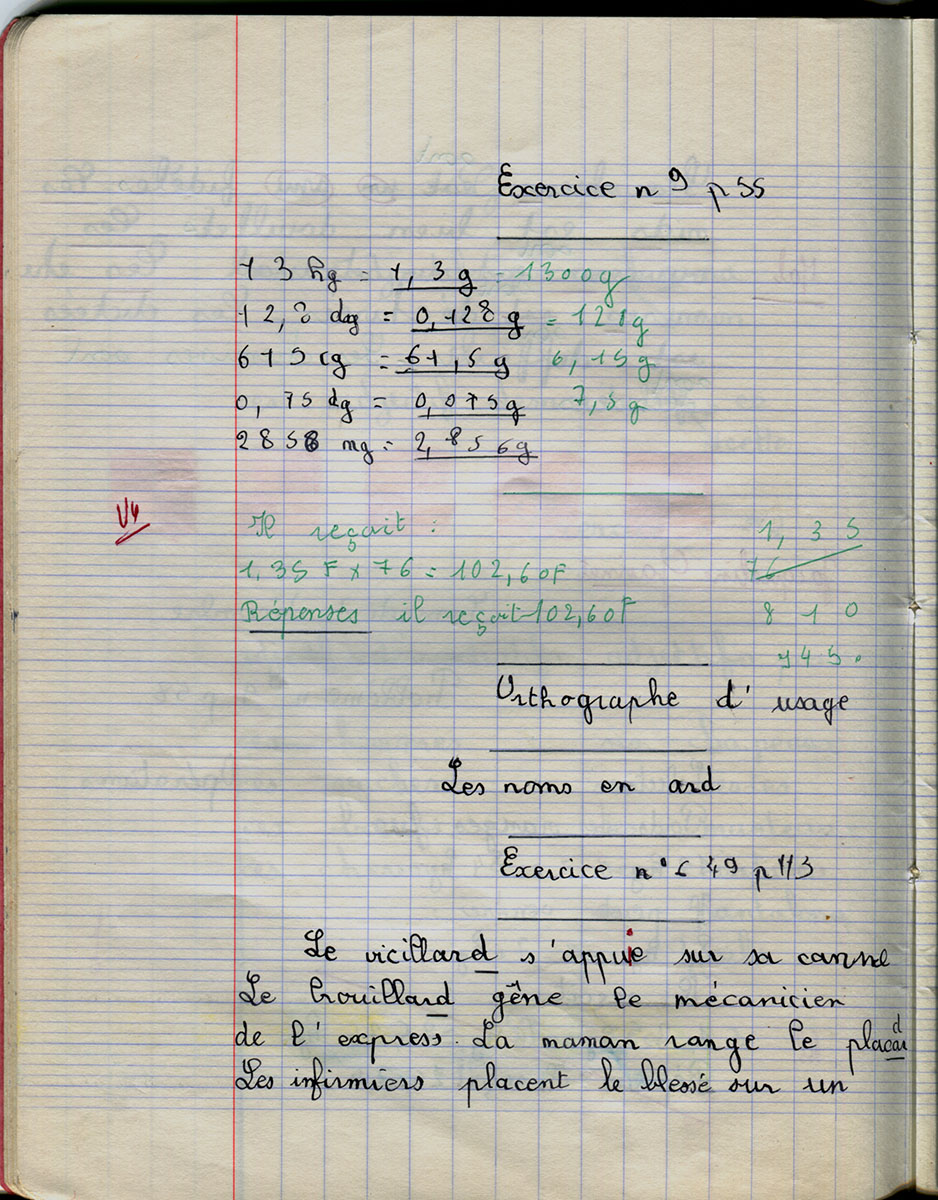 Exercice n 9 p 55
13 hg = 1,3 g = 1300g
12,8 dag = 0,128 g = 128g
615 cg = 61,5 g 6,15g
0,75 dg = 0,075g 7,5g
2858 mg = 2,856g
Il reçoit :
1,35 F x 76 = 102,60F
Répenses il reçoit 102,60F
1,35
76
810
945.
Orthographe d'usage
Les noms en ard
Exercice n° 649 p 113
Le vieillard s'appuie sur sa canne
Le brouillard gêne le mécanicien
de l'express. La maman range le placard
Les infirmiers placent le blessé sur un